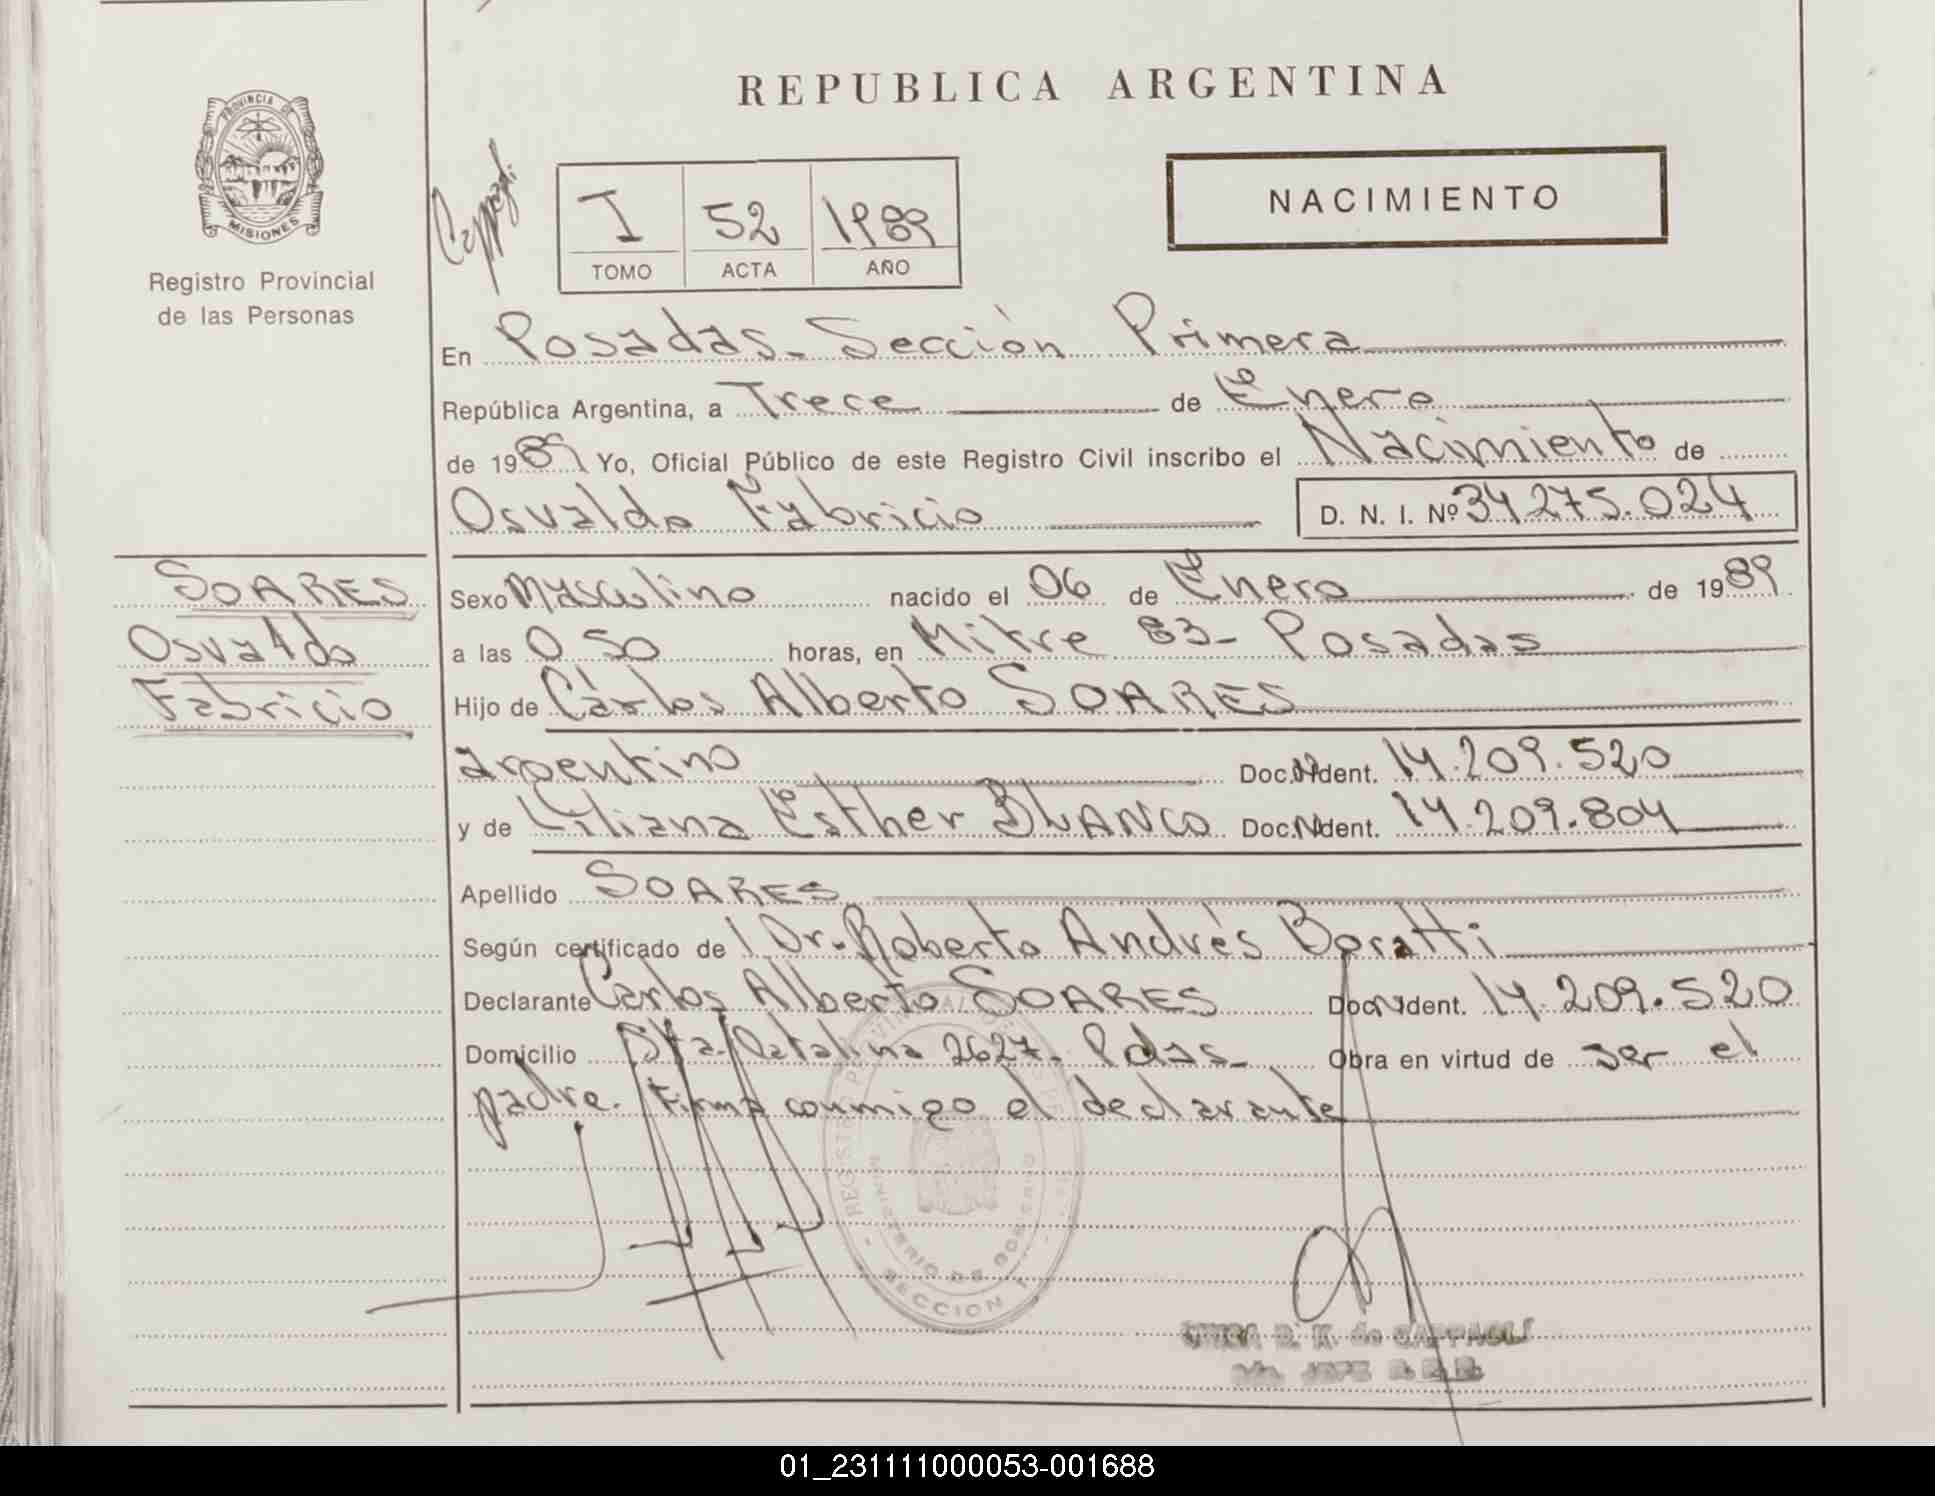 REPUBLICA ARGENTINA
PROVINCIA DE
MISIONES
Registro Provincial
de las Personas
I 52 1989
TOMO ACTA AÑO
NACIMIENTO
En Posadas. Sección Primera
República Argentina, a Trece de Enero
de 1989 Yo, Oficial Público de este Registro Civil inscribo el Nacimiento de
Osvaldo Fabricio D. N. I. Nº 34275.024
SOARES
Osvaldo
Fabricio
Sexo Masculino nacido el 06 de Enero de 1989
a las 0 50 horas, en Mitre 83- Posadas
Hijo de Carlos Alberto SOARES
argentino Doc. Ident. 14.209.520
y de Liliana Esther BLANCO Doc. Ident. 14.209.804
Apellido SOARES
Según certificado de Dr. Roberto Andrés Boratti
Declarante Carlos Alberto SOARES Doc. Ident. 14.209.520
Domicilio Sta. Catalina 2627. Pdas. Obra en virtud de ser el
padre. Firma conmigo el declarante
REGISTRO PROVINCIAL DE LAS
MINISTERIO DE GOBIERNO
SECCION 1
01_231111000053-001688